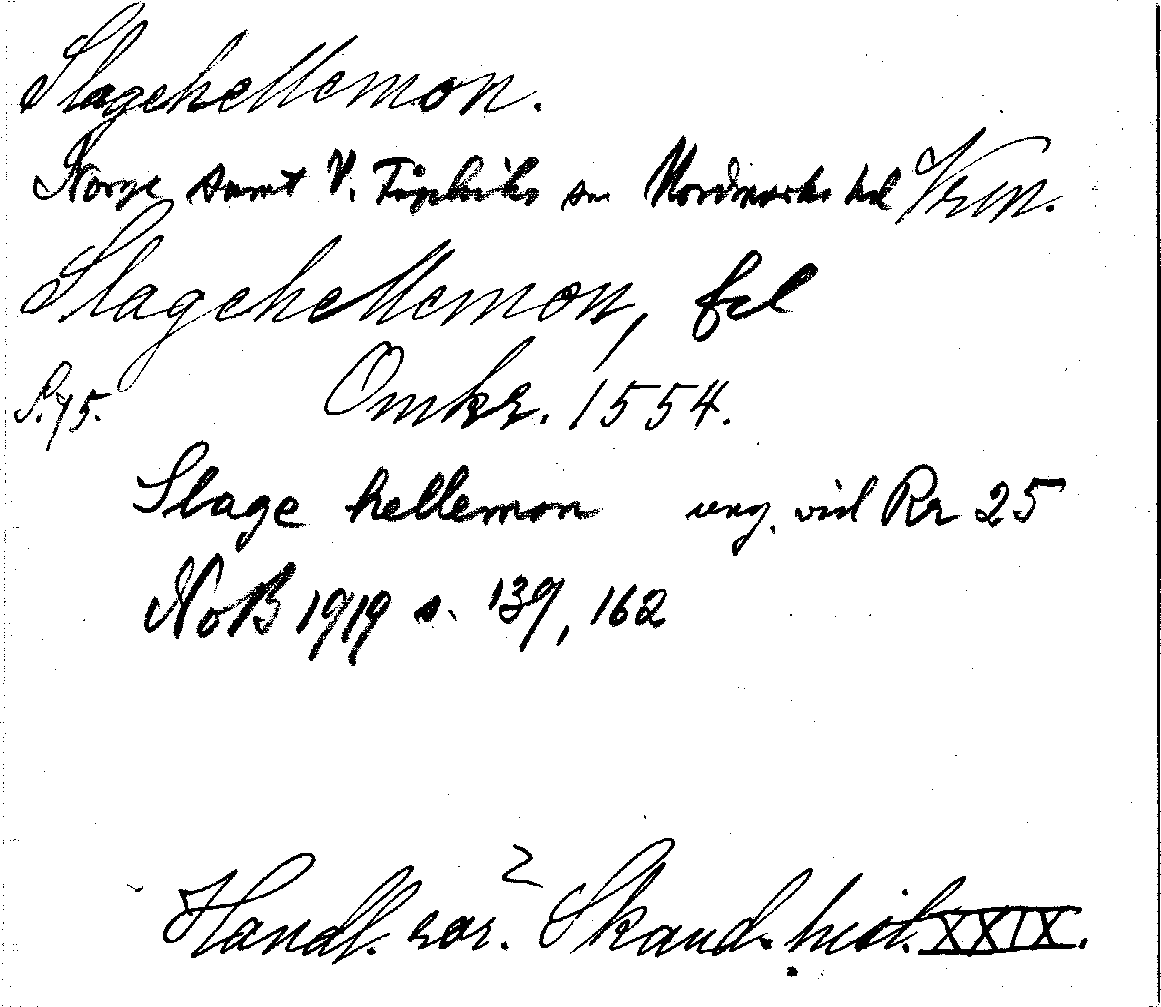 Slagehellemon.
Norge samt V. Fågelviks sn Nordmarks hd Vrm.
Slagehellemon, fel
S. 75. Omkr. 1554.
Slage hellemon ung. vid Rr 25
NoB 1919 s. 139, 162
Handl. rör. Skand. hist. XXIX.